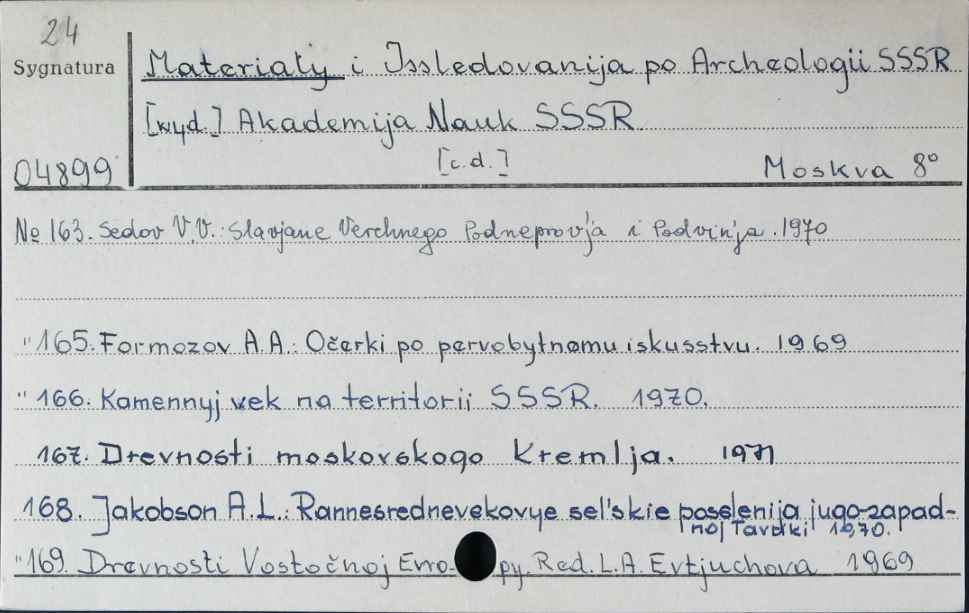 24
Sygnatura
Materiały i Issledovanija po Archeologii SSSR
[wyd.] Akademija Nauk SSSR
04899
[c.d.]
Moskva 8°
No 163. Sedov V.V.: Slavjane Verchnego Podneprov'ja i Podvin'ja. 1970
" 165. Formozov A.A.: Očerki po pervobytnomu iskusstvu. 1969
" 166. Kamennyj vek na territorii SSSR. 1970.
167. Drevnosti moskovskogo Kremlja. 1971
168. Jakobson A.L.: Rannesrednevekovye sel'skie poselenija jugo-zapad-
noj Tavriki 1970.
" 169. Drevnosti Vostočnoj Evropy. Red. L.A. Evtjuchova 1969